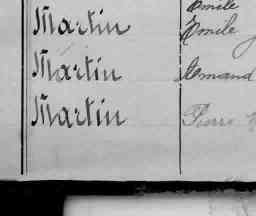 Emile
Martin Emile
Martin Armand
Martin Pierre